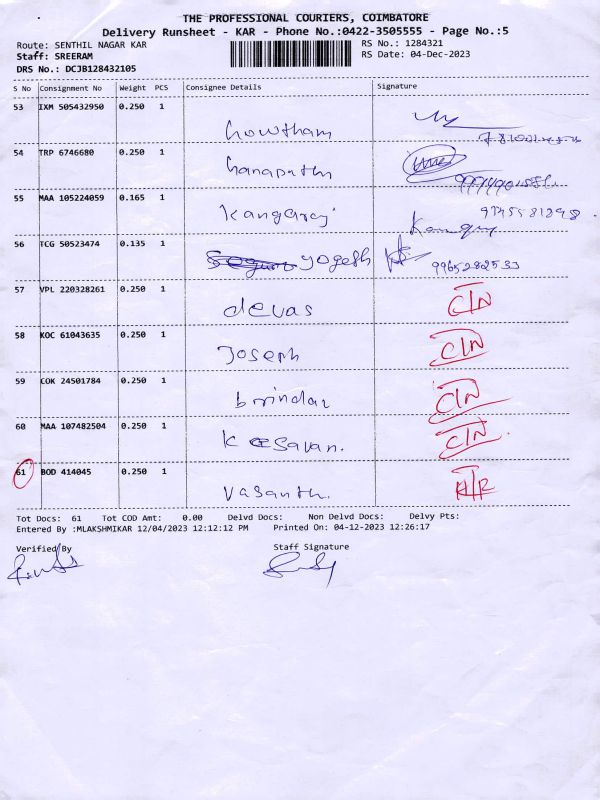 THE PROFESSIONAL COURIERS, COIMBATORE
Delivery Runsheet - KAR - Phone No.:0422-3505555 - Page No.:5
Route: SENTHIL NAGAR KAR RS No.: 1284321
Staff: SREERAM RS Date: 04-Dec-2023
DRS No.: DCJB128432105
S No Consignment No Weight PCS Consignee Details Signature
53 IXM 505432950 0.250 1 Gowtham
54 TRP 6746680 0.250 1 Ganapathi
55 MAA 105224059 0.165 1 Kangaraj
56 TCG 50523474 0.135 1 yogesh 9965282533
57 VPL 220328261 0.250 1 devas CIN
58 KOC 61043635 0.250 1 Joseph CIN
59 COK 24501784 0.250 1 brindar CIN
60 MAA 107482504 0.250 1 Kesavan. CIN
61 BOD 414045 0.250 1 Vasanth.
Tot Docs: 61 Tot COD Amt: 0.00 Delvd Docs: Non Delvd Docs: Delvy Pts:
Entered By :MLAKSHMIKAR 12/04/2023 12:12:12 PM Printed On: 04-12-2023 12:26:17
Verified By Staff Signature